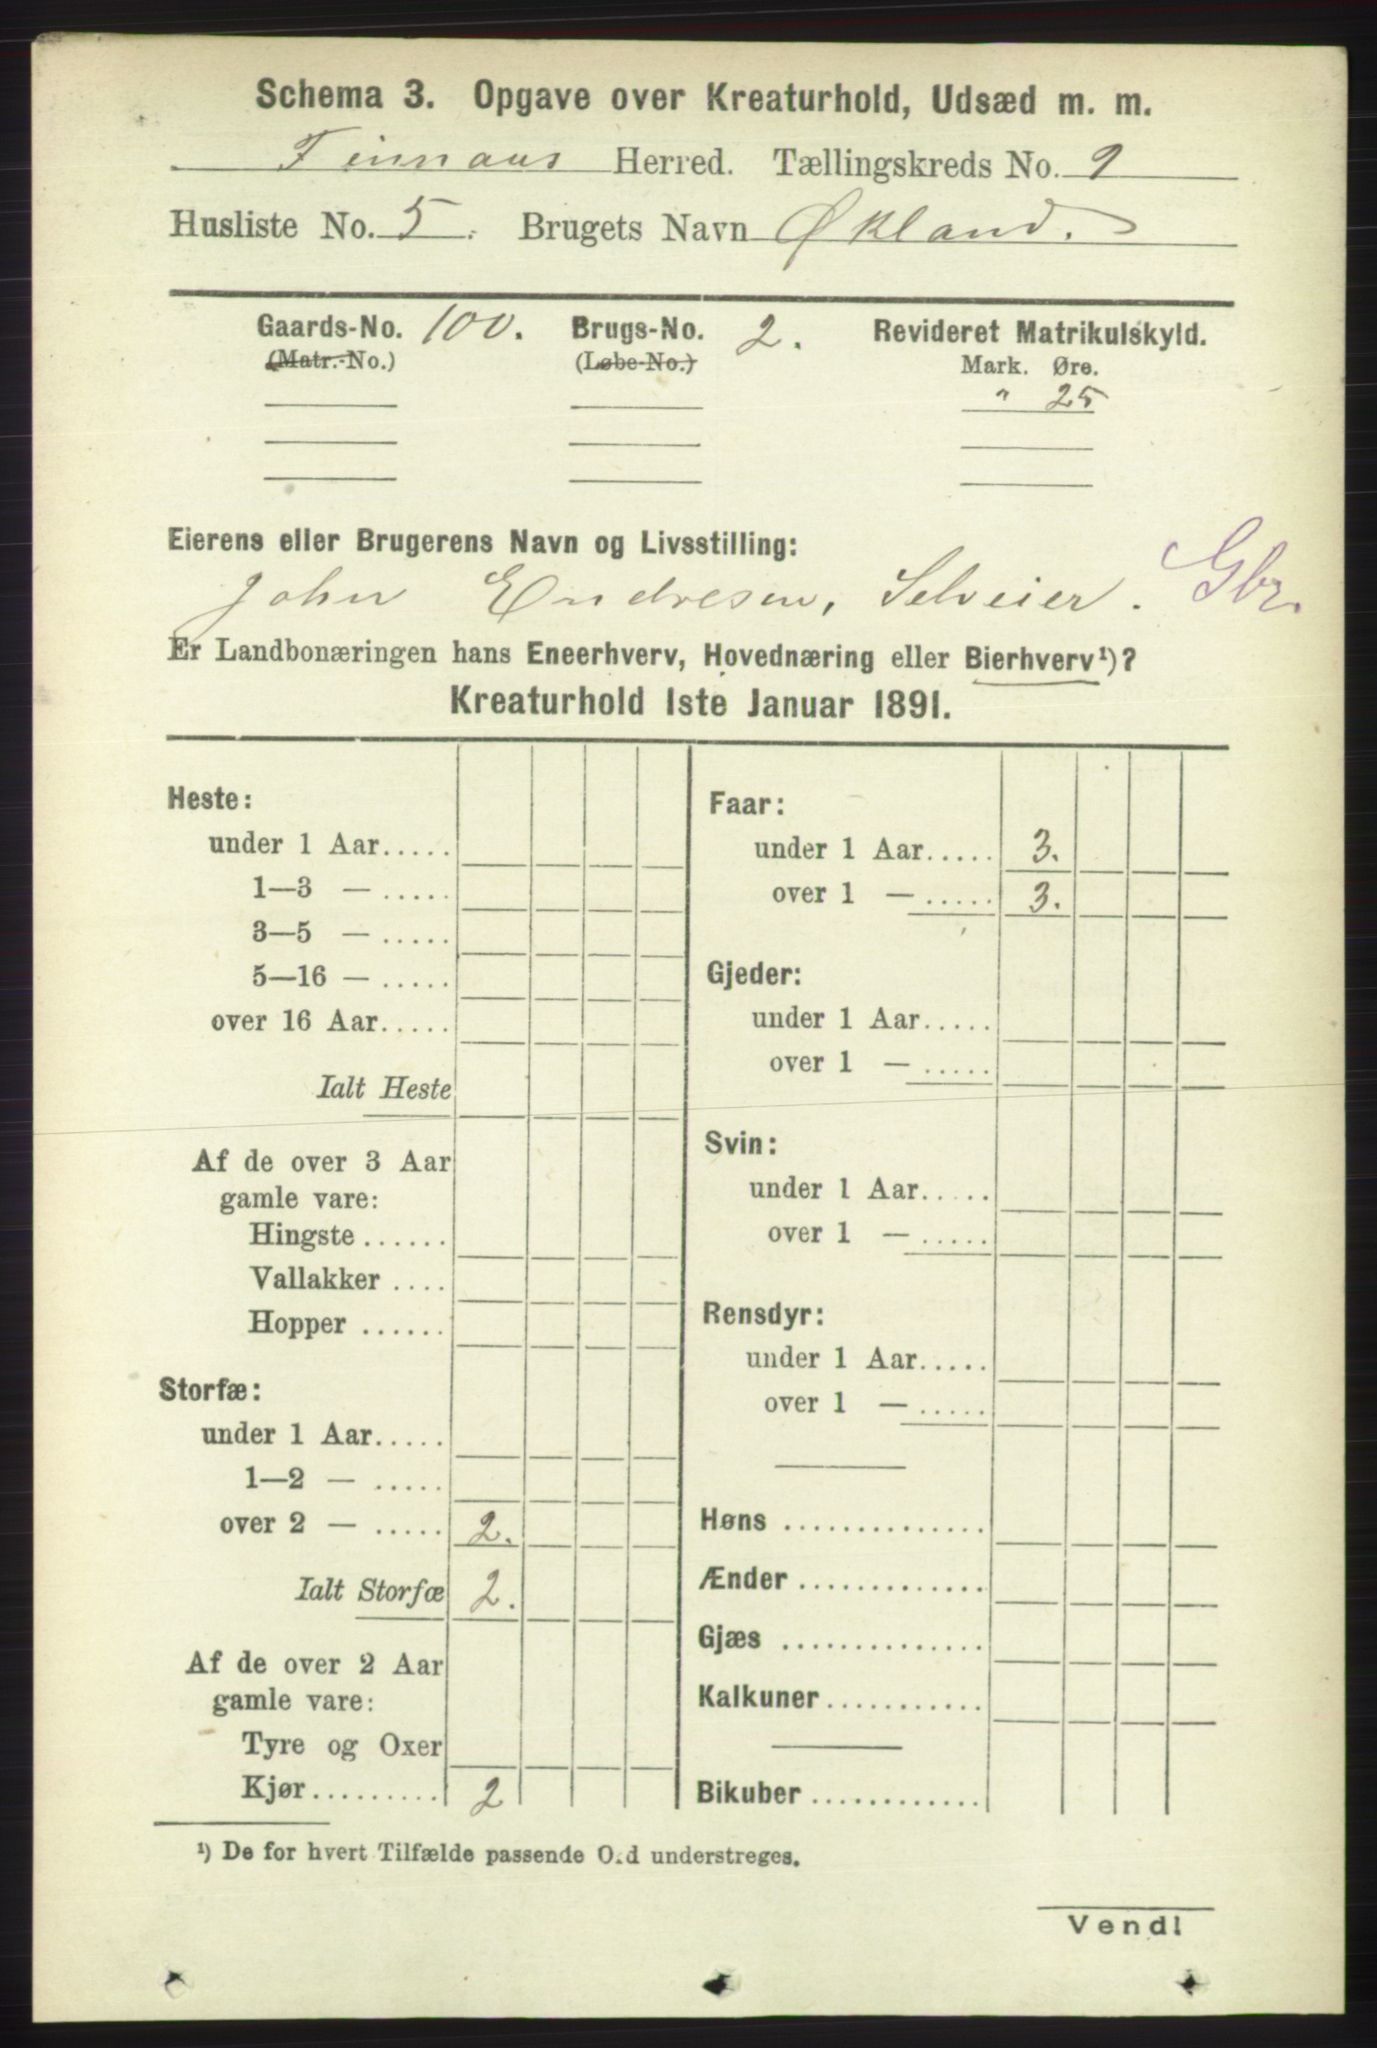 Schema 3. Opgave over Kreaturhold, Udsæd m. m.
Finnaas Herred. Tællingskreds No. 9
Husliste No. 5. Brugets Navn Økland.
Gaards-No. 100. Brugs-No. 2. Revideret Matrikulskyld.
(Matr.-No.) (Løbe-No.) Mark. Øre.
" 25
Eierens eller Brugerens Navn og Livsstilling:
John Endresen, Selveier. Gbr.
Er Landbonæringen hans Eneerhverv, Hovednæring eller Bierhverv¹)?
Kreaturhold 1ste Januar 1891.
Heste:
under 1 Aar.....
1—3 — .....
3—5 — .....
5—16 — .....
over 16 Aar.....
Ialt Heste
Af de over 3 Aar
gamle vare:
Hingste ......
Vallakker ....
Hopper ......
Storfæ:
under 1 Aar.....
1—2 — .....
over 2 — ..... 2.
Ialt Storfæ 2.
Af de over 2 Aar
gamle vare:
Tyre og Oxer
Kjør......... 2
Faar:
under 1 Aar..... 3.
over 1 — ..... 3.
Gjeder:
under 1 Aar.....
over 1 — .....
Svin:
under 1 Aar.....
over 1 — .....
Rensdyr:
under 1 Aar.....
over 1 — .....
Høns ..............
Ænder .............
Gjæs ..............
Kalkuner...........
Bikuber ............
¹) De for hvert Tilfælde passende Ord understreges.
Vend!